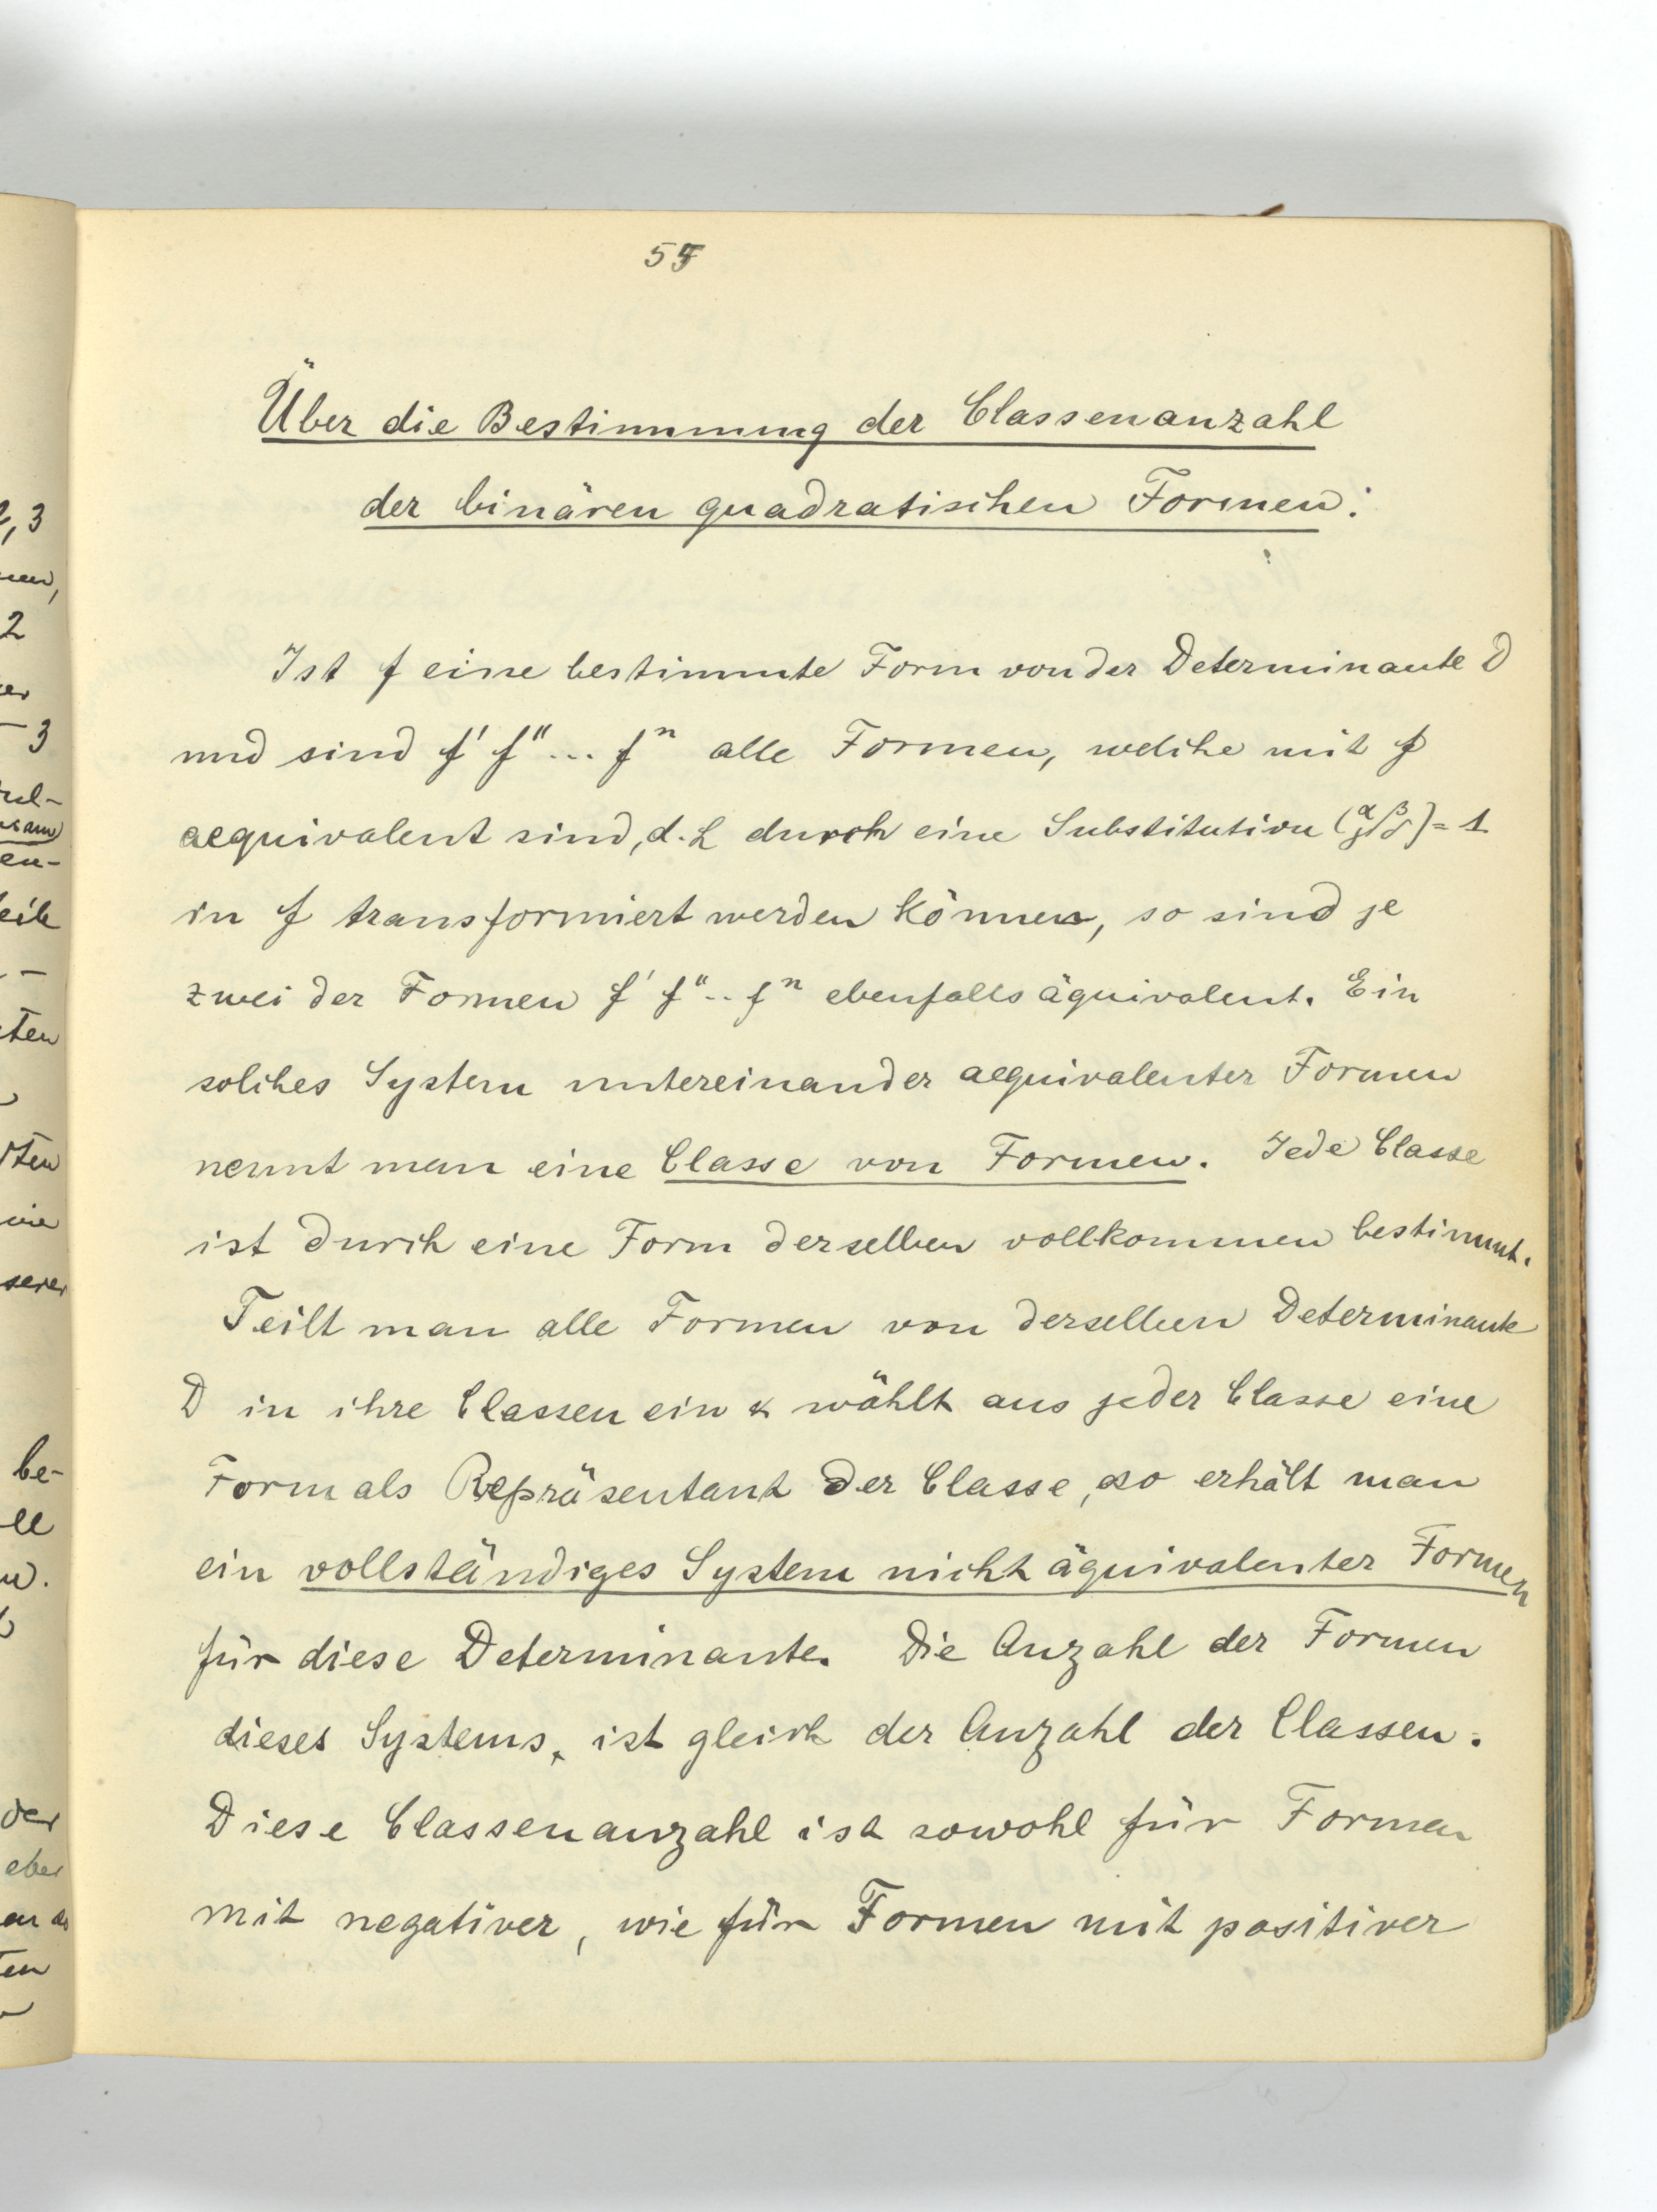 55
Über die Bestimmung der Classenanzahl
der binären quadratischen Formen:
Ist f eine bestimmte Form von der Determinante D
und sind f' f" ... fⁿ alle Formen, welche mit f
aequivalent sind, d.h durch eine Substitution (α β γ δ) = 1
in f transformiert werden können, so sind je
zwei der Formen f' f" .. fⁿ ebenfalls äquivalent. Ein
solches System untereinander aequivalenter Formen
nennt man eine Classe von Formen. Jede Classe
ist durch eine Form derselben vollkommen bestimmt.
Teilt man alle Formen von derselben Determinante
D in ihre Classen ein & wählt aus jeder Classe eine
Form als Repräsentant der Classe, so erhält man
ein vollständiges System nicht äquivalenter Formen
für diese Determinante. Die Anzahl der Formen
dieses Systems, ist gleich der Anzahl der Classen.
Diese Classenanzahl ist sowohl für Formen
mit negativer, wie für Formen mit positiver
2,3
2
- 3
be-
der